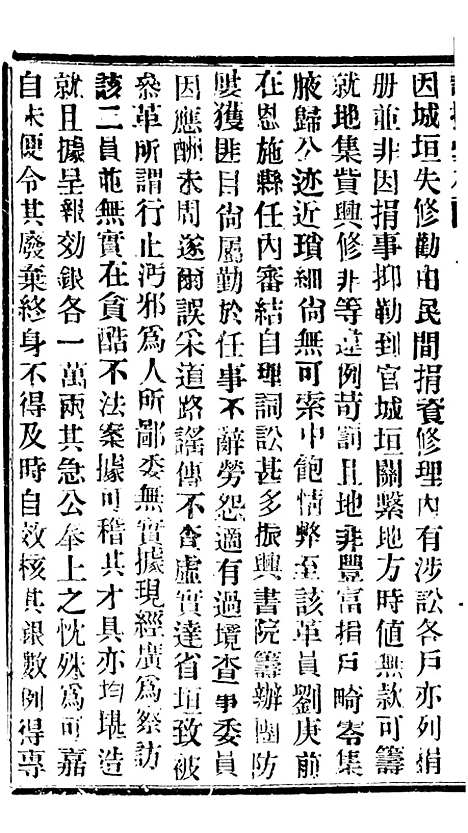 因城垣失修勸由民間捐資修理內有涉訟各戶亦列捐
册並非因捐事抑勒到官城垣關繫地方時値無款可籌
就地集貲興修非等違例苛罰且地非豐富捐戶畸零集
腋歸公迹近瑣細尙無可索中飽情弊至該革員劉庚前
在恩施縣任內審結自理詞訟甚多振興書院籌辦團防
屢獲匪目尙屬勤於任事不辭勞怨適有過境查事委員
因應酬未周遂爾誤采道路謠傳不查虛實達省垣致被
叅革所謂行止汚邪爲人所鄙委無實據現經廣爲察訪
該二員並無實在貪酷不法案據可稽其才具亦均堪造
就且據呈報効銀各一萬兩其急公奉上之忱殊爲可嘉
自未便令其廢棄終身不得及時自效核其銀數例得專